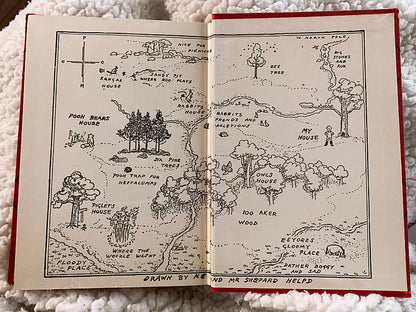 P
NICE FOR
PICNICKS
TO NORTH POLE
BIG
STONES AND
ROX
BEE
TREE
KANGAS
HOUSE
SANDY PIT
WHERE ROO PLAYS
RABBITS
HOUSE
RABBITS
FRIENDS AND
RALETIONS
POOH BEARS
HOUSE
MY
HOUSE
SIX PINE
TREES
POOH TRAP FOR
HEFFALUMPS
OWLS
HOUSE
PIGLETS
HOUSE
100 AKER
WOOD
WHERE THE
WOOZLE WASNT
FLOODY
PLACE
EEYORES
GLOOMY
PLACE
RATHER BOGGY
AND SAD
DRAWN BY ME AND MR SHEPARD HELPD